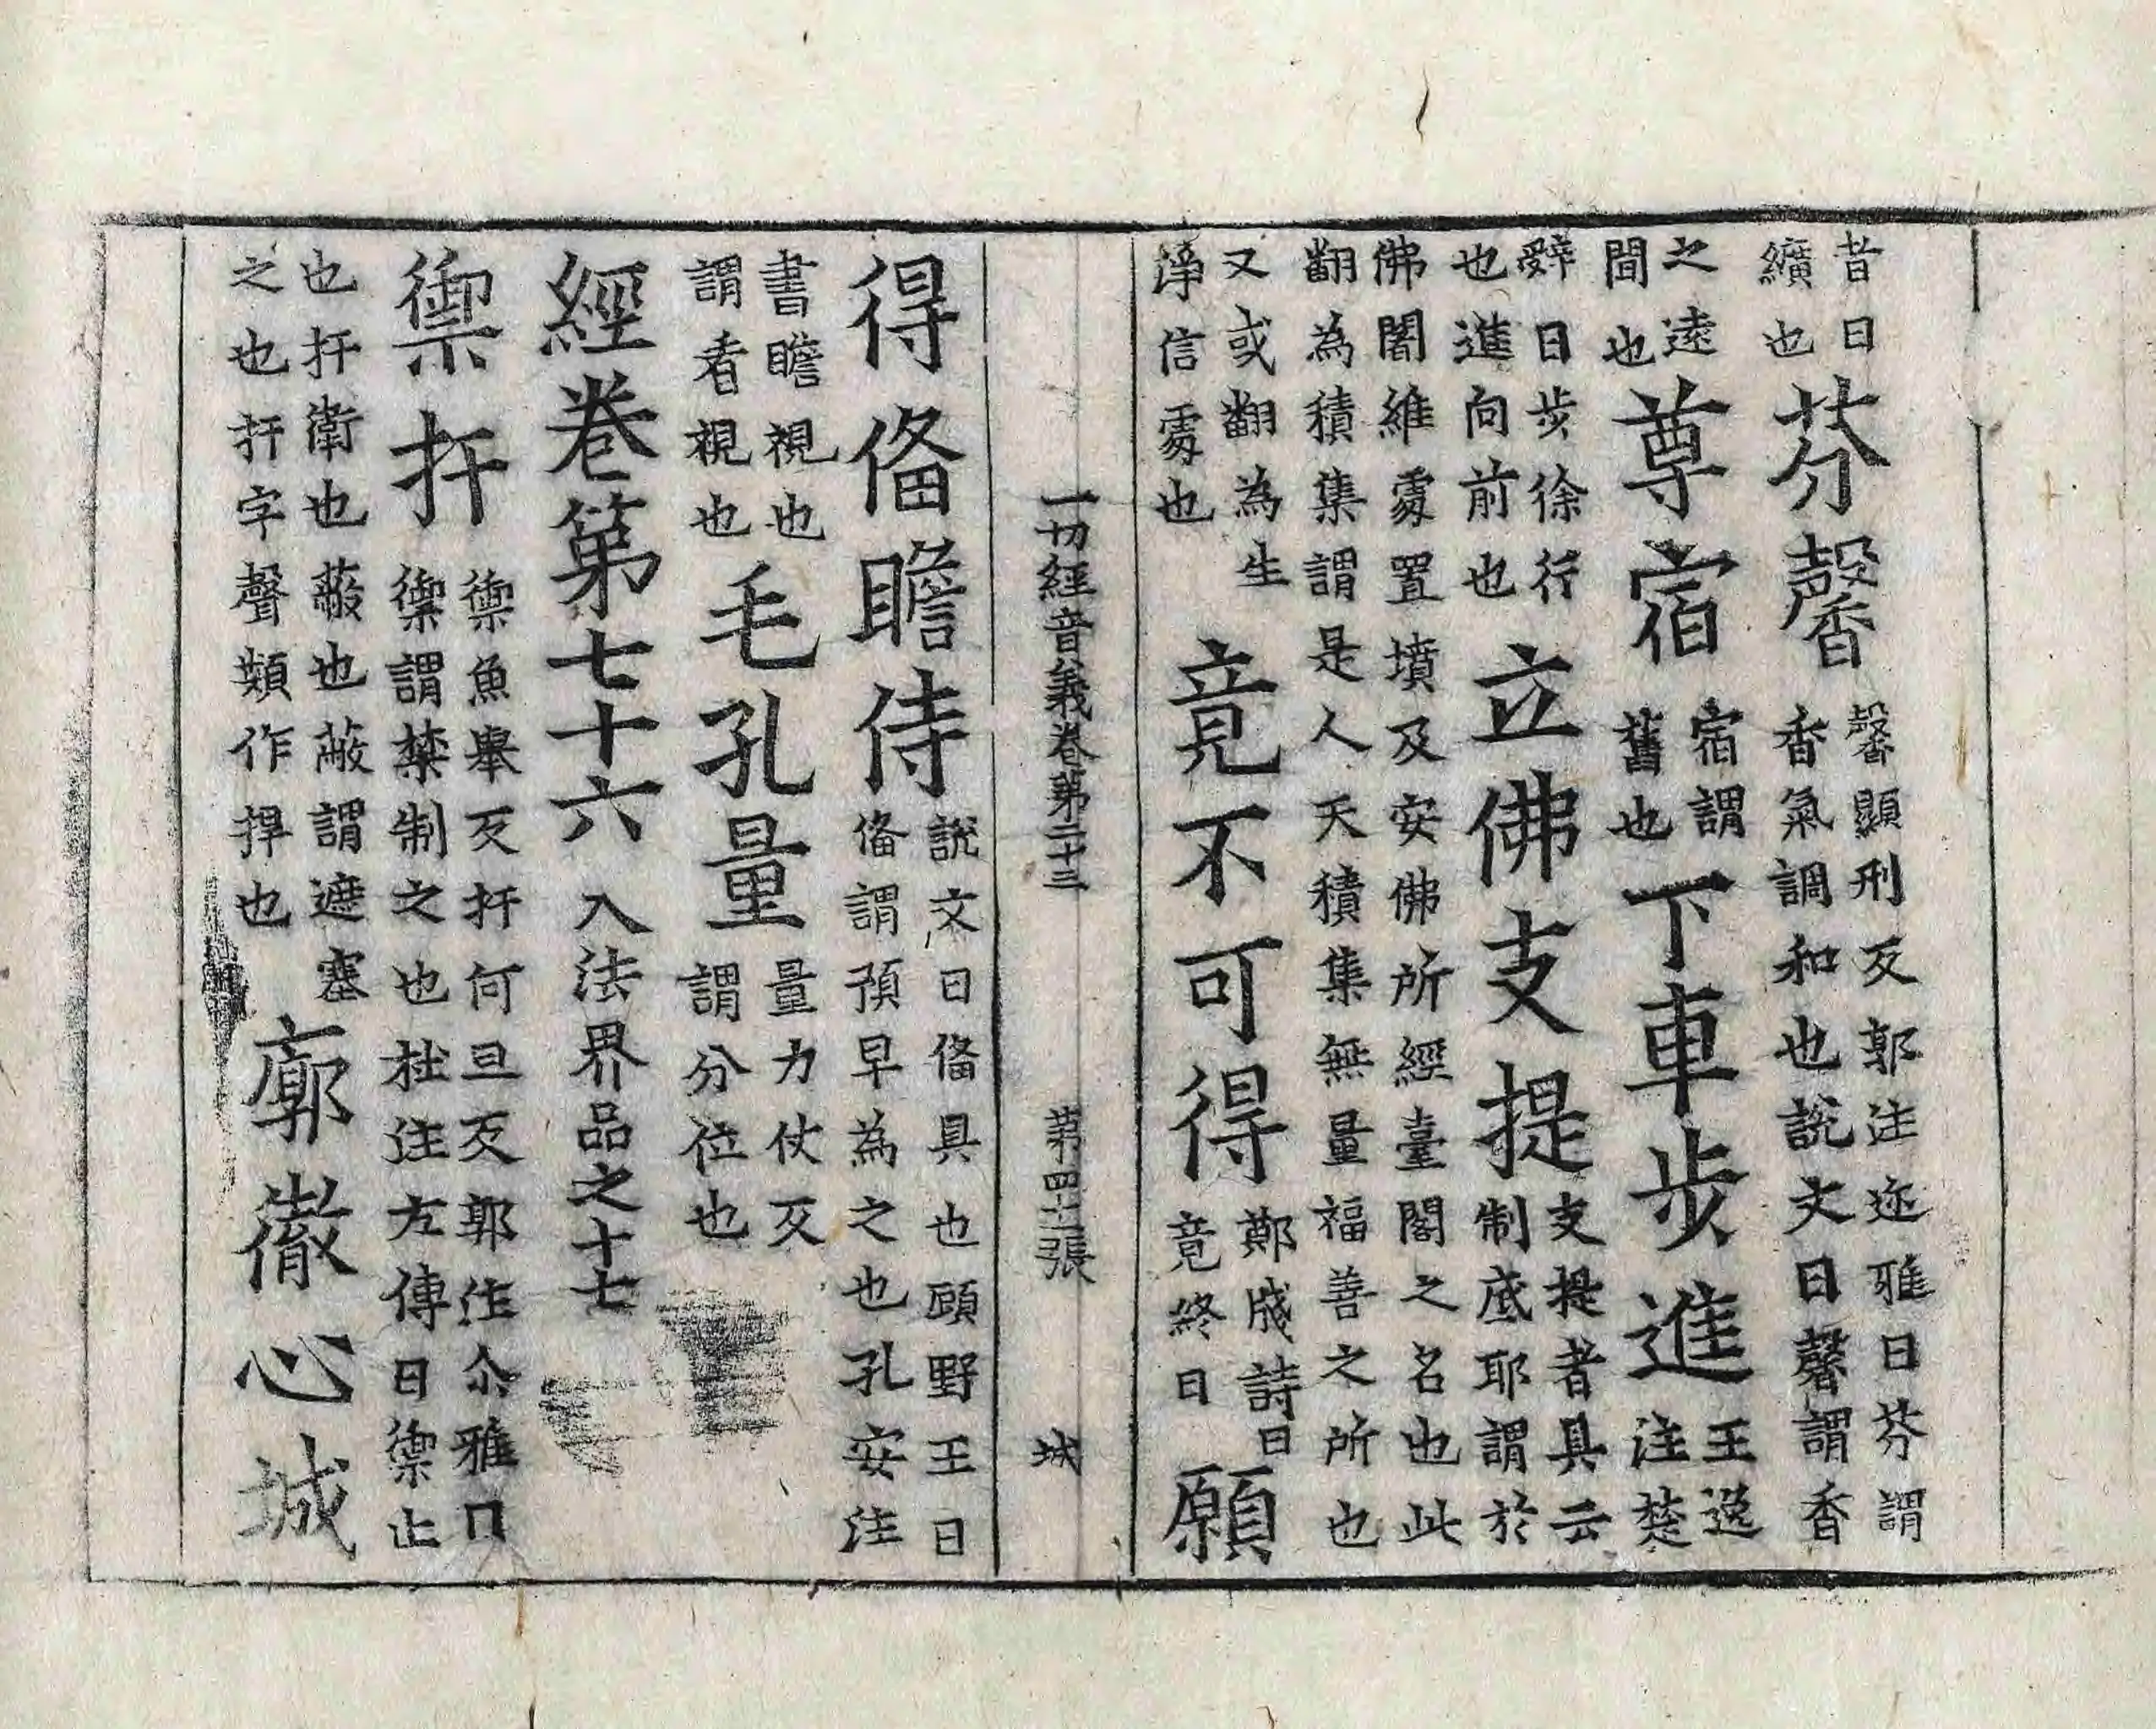 昔曰
纊也
芬馨
馨顯刑反郭注迩雅曰芬謂
香氣調和也說文曰馨謂香
之遠
間也
尊宿
宿謂
舊也
下車步進
王逸
注楚
辭曰步徐行
也進向前也
立佛支提
支提者具云
制底耶謂於
佛闍維處置墳及安佛所經臺閣之名也此
翻為積集謂是人天積集無量福善之所也
又或翻為生
淨信處也
竟不可得
鄭牋詩曰
竟終曰
願
一切經音義卷第二十三 第四十一張 城
得俻瞻侍
說文曰俻具也顧野王曰
俻謂預早為之也孔安注
書瞻視也
謂看視也
毛孔量
量力仗反
謂分位也
經卷第七十六 入法界品之十七
禦扞
禦魚舉反扞何旦反郭注尒雅曰
禦謂禁制之也杜注左傳曰禦止
也扞衛也蔽也蔽謂遮塞
之也扞字聲類作捍也
廓徹心城